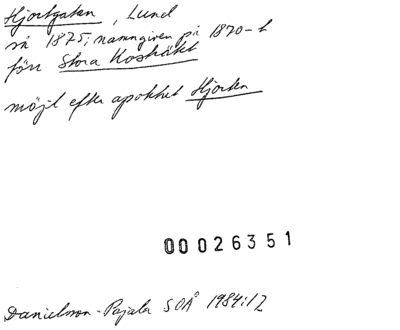 Hjortgatan, Lund
så 1875; namngiven på 1870-t
förr Stora Kosträket
möjl efter apoteket Hjorten
00026351
Danielsson-Pajala SOÅ 1984:12